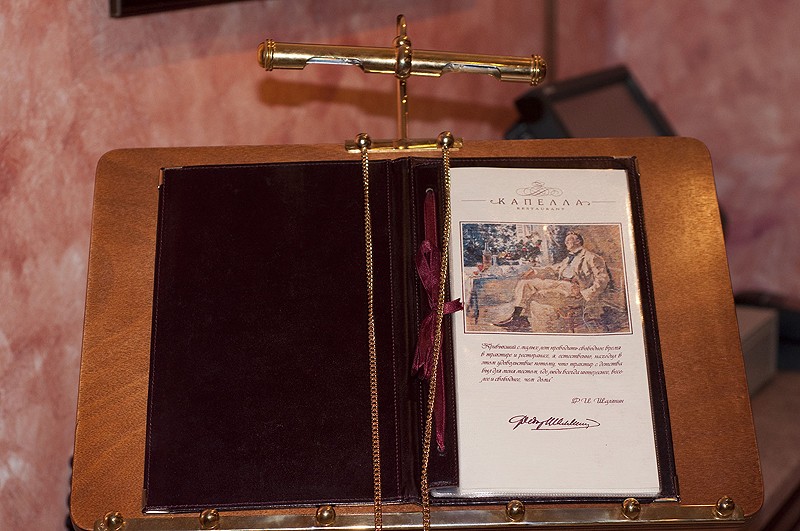 КАПЕЛЛА
РЕСТОРАН
"Привыкший с малых лет проводить свободное время
в трактире и ресторанах, я, естественно, находил в
этом удовольствие потому, что трактир с детства
был для меня местом, где люди всегда интереснее, весе
лее и свободнее, чем дома"
Ф. И. Шаляпин